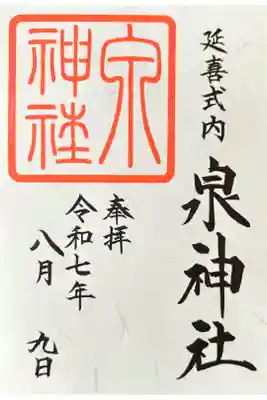 延喜式内
泉神社
泉
神社
奉拝
令和七年
八月
九日